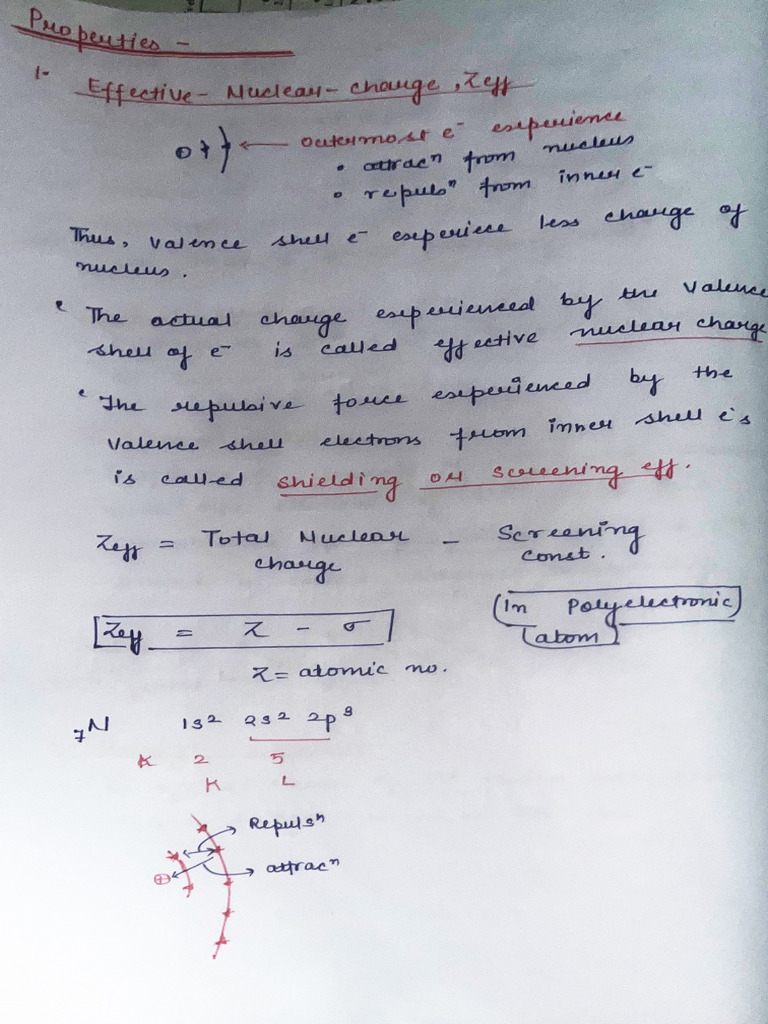 Properties -
1- Effective - Nuclear - charge, Zeff
outermost e⁻ experience
• attracⁿ from nucleus
• repulsⁿ from inner e⁻
Thus, valence shell e⁻ experiece less charge of
nucleus.
The actual charge experienced by the valence
shell of e⁻ is called effective nuclear charge
The repulsive force experienced by the
valence shell electrons from inner shell e⁻s
is called shielding or screening eff.
Zeff = Total Nuclear - Screening
charge const.
Zeff = Z - σ (In Polyelectronic
atom)
Z = atomic no.
₇N 1s² 2s² 2p³
K 2 5
K L
Repulsⁿ
⊕ attracⁿ